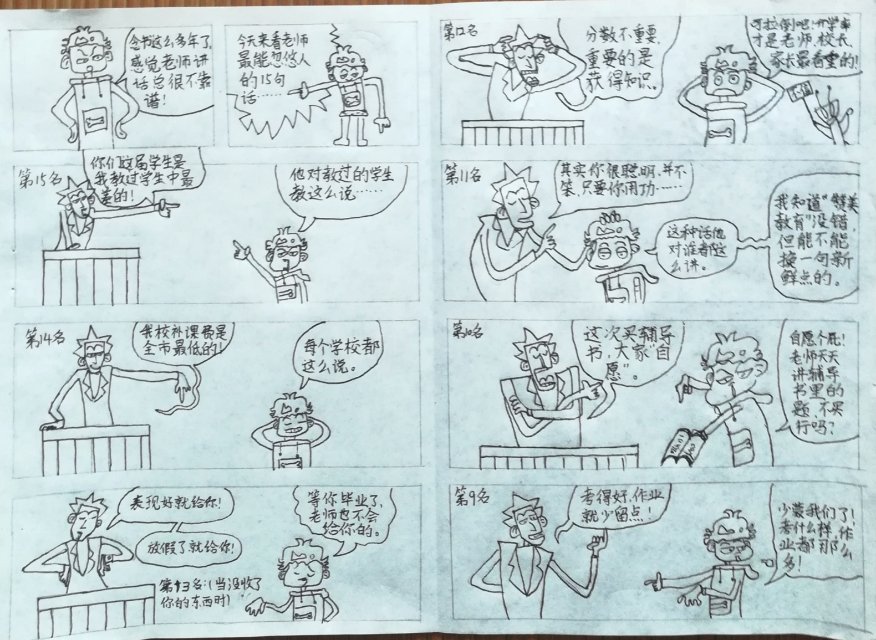 念书这么多年了,
感觉老师讲
话总很不靠
谱!
今天来看老师
最能忽悠人
的15句
话……
第15名
你们这届学生是
我教过学生中最
差的!
他对教过的学生
都这么说……
第14名
我校补课费是
全市最低的!
每个学校都
这么说。
表现好就给你!
放假了就给你!
第13名:(当没收了
你的东西时)
等你毕业了,
老师也不会
给你的。
第12名
分数不重要,
重要的是
获得知识。
可拉倒吧!升学率
才是老师,校长,
家长最看重的!
第11名
其实你很聪明,并不
笨,只要你用功……
这种话他
对谁都这
么讲。
我知道"赞美
教育"没错,
但能不能
换一句新
鲜点的。
第10名
这次买辅导
书,大家"自
愿"。
自愿个屁!
老师天天
讲辅导
书里的
题 不买
行吗?
第9名
考得好,作业
就少留点!
少蒙我们了!
考什么样,作
业都那么
多!